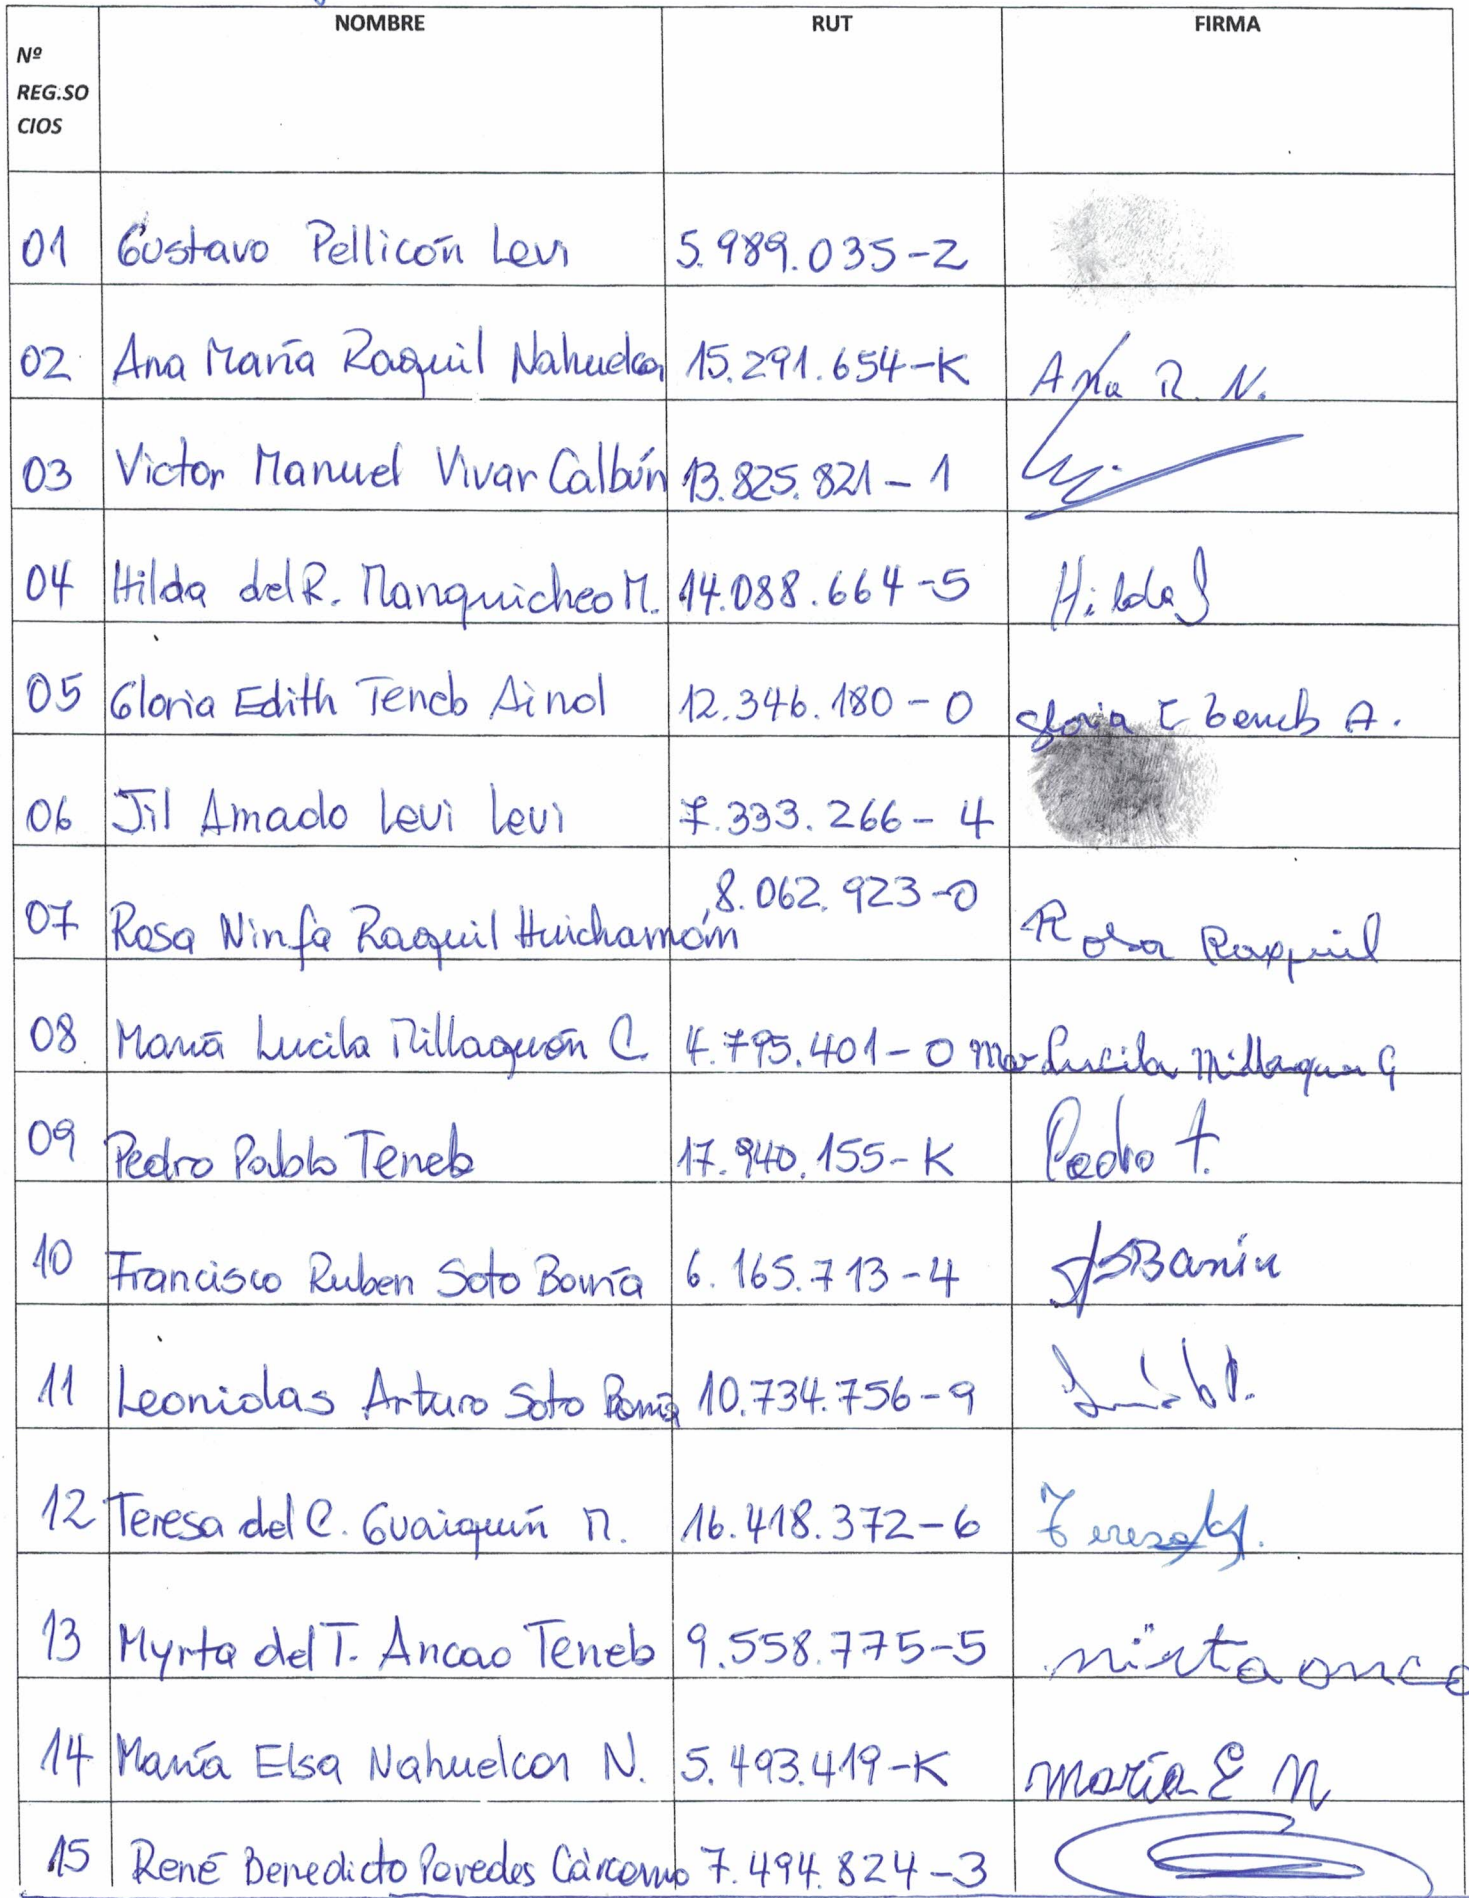 NOMBRE RUT FIRMA
Nº
REG.SO
CIOS
01 Gustavo Pellicón Levi 5.989.035-2
02 Ana María Raquil Nahuelcar 15.291.654-K Ana R. N.
03 Victor Manuel Vivar Calbún 13.825.821-1
04 Hilda del R. Manquicheo M. 14.088.664-5 Hilda
05 Gloria Edith Teneb Ainol 12.346.180-0 gloria E teneb A.
06 Jil Amado Levi Levi 7.333.266-4
07 Rosa Ninfa Raquil Huichamán 8.062.923-0 Rosa Raquil
08 María Lucila Millaquén C. 4.795.401-0 Mar Lucila Millaquen
09 Pedro Pablo Teneb 17.940.155-K Pedro t.
10 Francisco Ruben Soto Barría 6.165.713-4
11 Leonidas Arturo Soto Barría 10.734.756-9
12 Teresa del C. Guaiquín M. 16.418.372-6 Teresa
13 Myrta del T. Ancao Teneb 9.558.775-5 mirta anca
14 María Elsa Nahuelcar N. 5.493.419-K maria E N
15 René Benedicto Paredes Cárcamo 7.494.824-3